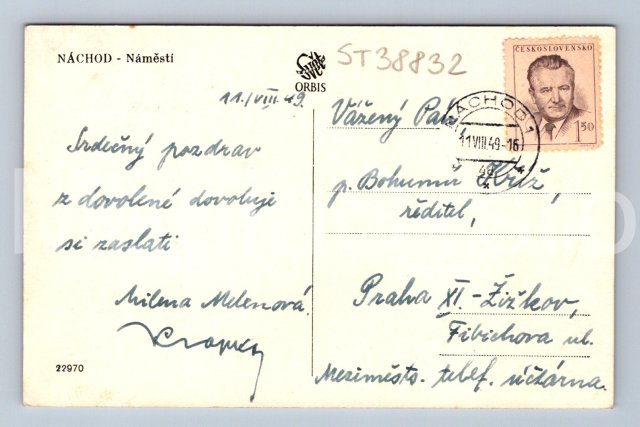 NÁCHOD - Náměstí
ORBIS
ST38832
ČESKOSLOVENSKO
1.50
NÁCHOD 1
11.VIII.49-16
11./VIII 49.
Srdečný pozdrav
z dovolené dovoluje
si zaslati
Milena Melenová.
Vážený Pan
p. Bohumil Kříž,
ředitel,
Praha XI. - Žižkov,
Fibichova ul.
Meziměsts. telef. účtárna.
22970